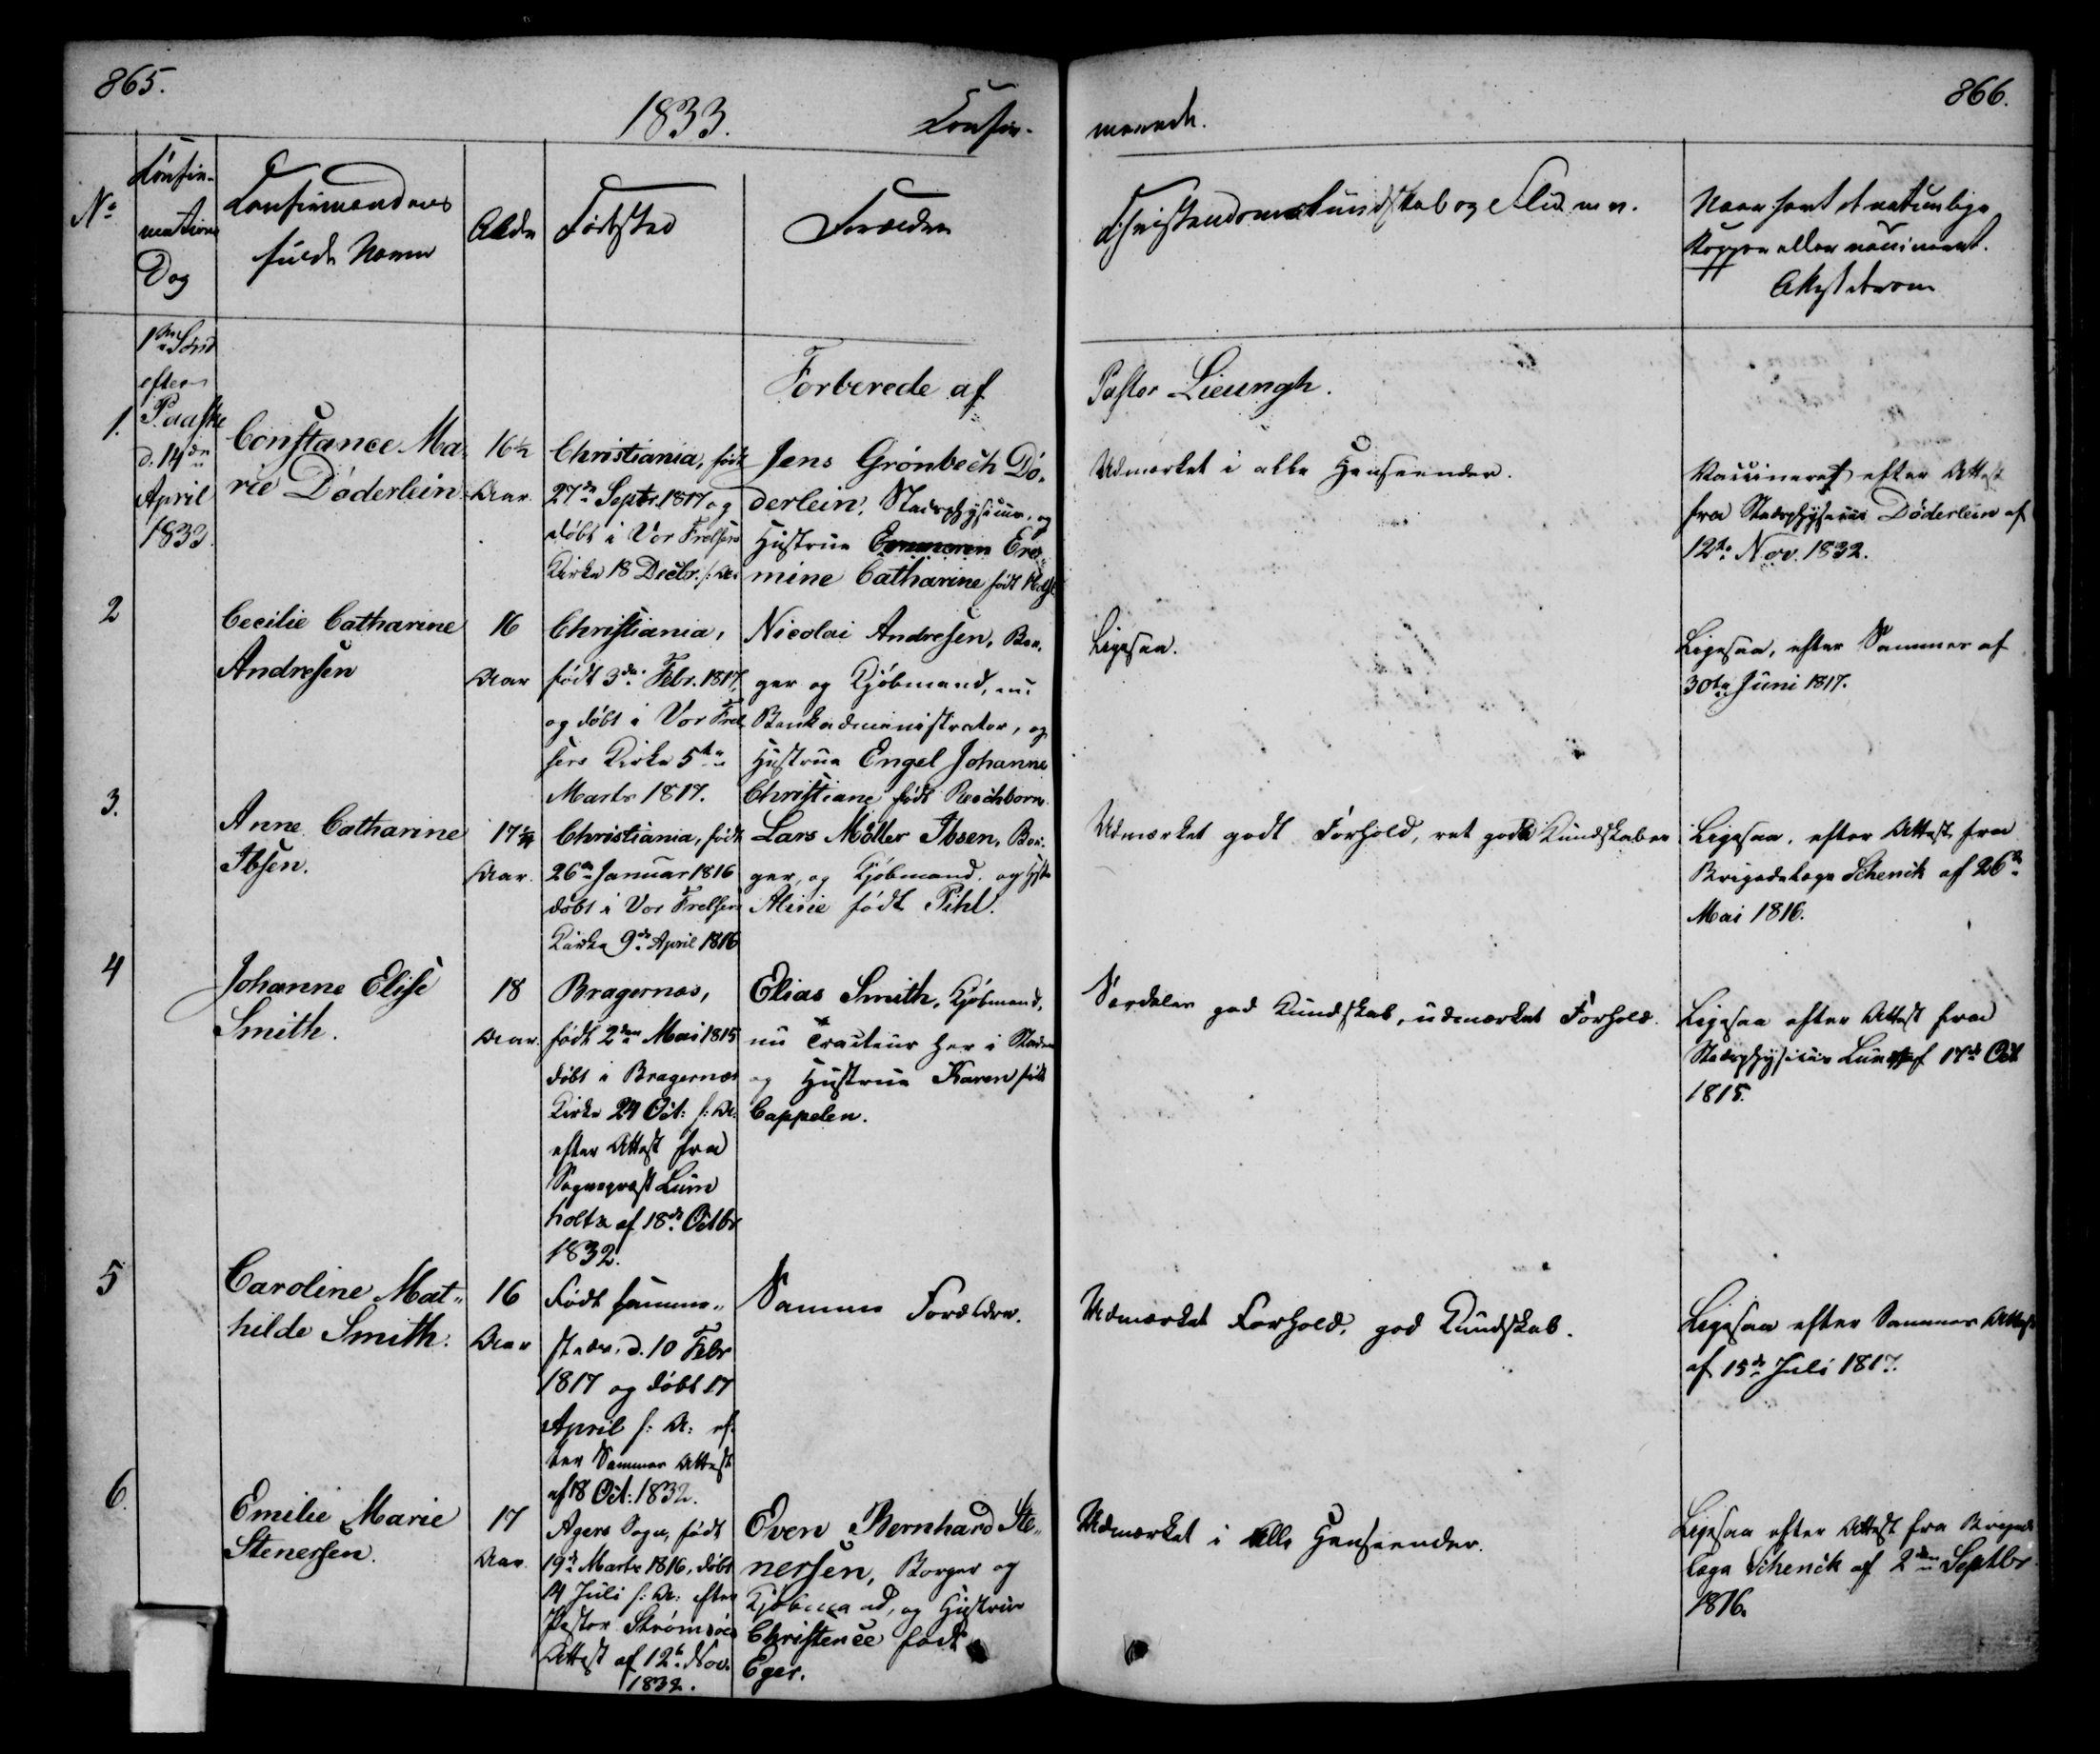 865.
1833.
Confir-
No
Confir-
mations
Dag
Confirmandens
fulde Navn
Alder
Fødsted
Forældre
1ste Sønd
efter
Paaske
d. 14de
April
1833.
Forberede af
1.
Constance Ma-
rie Døderlein
16½
Aar.
Christiania, født
27de Septr. 1817 og
døbt i Vor Frelsers
Kirke 18 Decbr. s: A:
Jens Grønbech Dø-
derlein, Stadsphysicus, og
Hustrue Ero-
mine Catharine født
2
Cecilie Catharine
Andresen
16
Aar
Christiania,
født 3de Febr. 1817,
og døbt i Vor Frel
sers Kirke 5te
Marts 1817.
Nicolai Andresen, Bor-
ger og Kjøbmand, nu
Bankadministrator, og
Hustrue Engel Johanne
Christiane født Reichborn
3.
Anne Catharine
Ibsen.
17¼
Aar.
Christiania, født
26de Januar 1816
døbt i Vor Frelsers
Kirke 9de April 1816
Lars Møller Ibsen, Bor-
ger, og Kjøbmand, og Hstr
Alicie født Pihl.
4
Johanne Elise
Smith.
18
Aar.
Bragernæs,
født 2den Mai 1815
døbt i Bragernæs
Kirke 24 Oct: s: A:
efter Attest fra
Sognepræst Lum
holtz af 18de Octbr
1832.
Elias Smith, Kjøbmand,
nu Tracteur her i Staden
og Hustrue Karen født
Cappelen.
5
Caroline Mat-
hilde Smith.
16
Aar
Født samme-
steds, d. 10 Febr
1817 og døbt 17
April s: A: ef-
ter Sammes Attest
af 18 Oct: 1832.
Samme Forældre.
6.
Emilie Marie
Stenersen.
17
Aar.
Agers Sogn, født
19de Marts 1816, døbt
14 Juli s: A: efter
Pastor Strømsøes
Attest af 12te Nov.
1832.
Even Bernhard Ste-
nersen, Borger og
Kjøbmand, og Hustrue
Christence født
Eger.
866.
merede.
Christendomskundskab og Flid m. v.
Naar havt de naturlige
Kopper eller vaccineret.
Attest derom
Pastor Lieungh.
Udmærket i alle Henseender.
Vaccineret efter Attest
fra Stadsphysicus Døderlein af
12te Nov. 1832.
Ligesaa.
Ligesaa, efter Sammes af
30te Juni 1817.
Udmærket godt Forhold, ret gode Kundskaber
Ligesaa, efter Attest fra
Brigadelæge Schenck af 26de
Mai 1816.
Særdeles god Kundskab, udmærket Forhold.
Ligesaa efter Attest fra
Stadsphysicus Lund af 17de Oct
1815.
Udmærket Forhold, god Kundskab.
Ligesaa efter Sammes Attest
af 15de Juli 1817.
Udmærket i alle Henseender.
Ligesaa efter Attest fra Brigade
læge Schenck af 2den Septbr
1816.